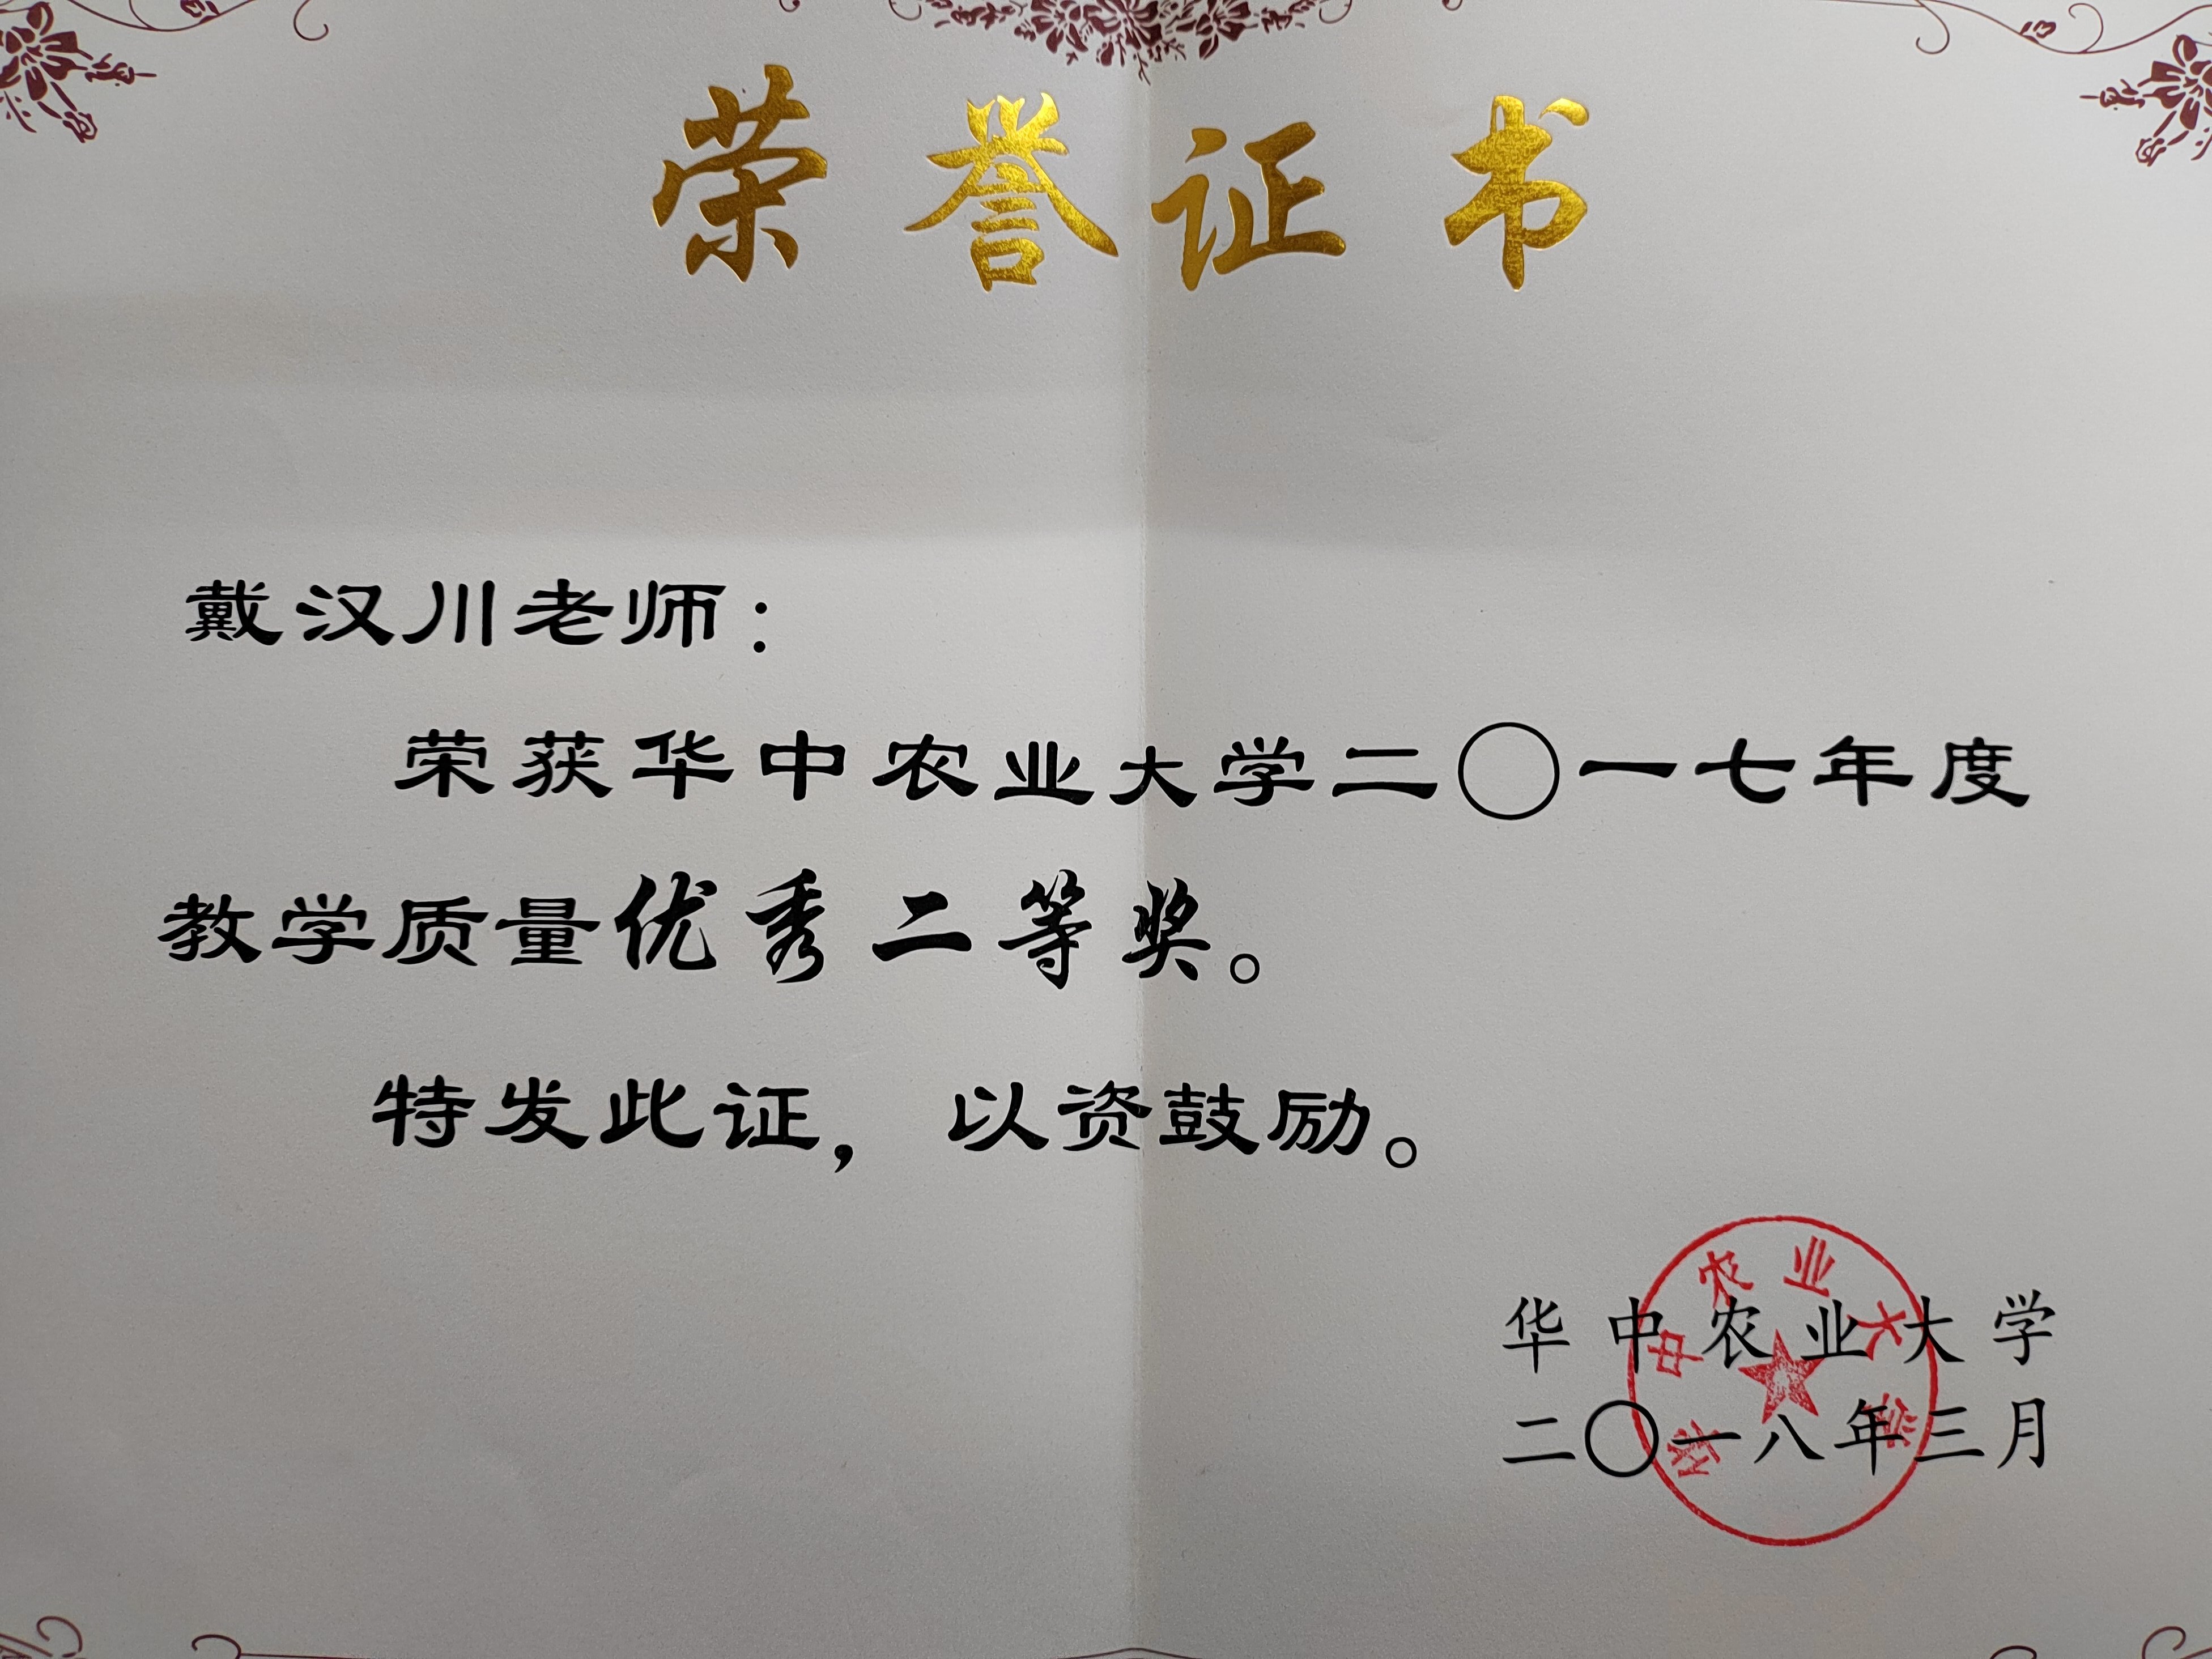 荣誉证书
戴汉川老师：
荣获华中农业大学二〇一七年度
教学质量优秀二等奖。
特发此证，以资鼓励。
华中农业大学
二〇一八年三月
华中农业大学